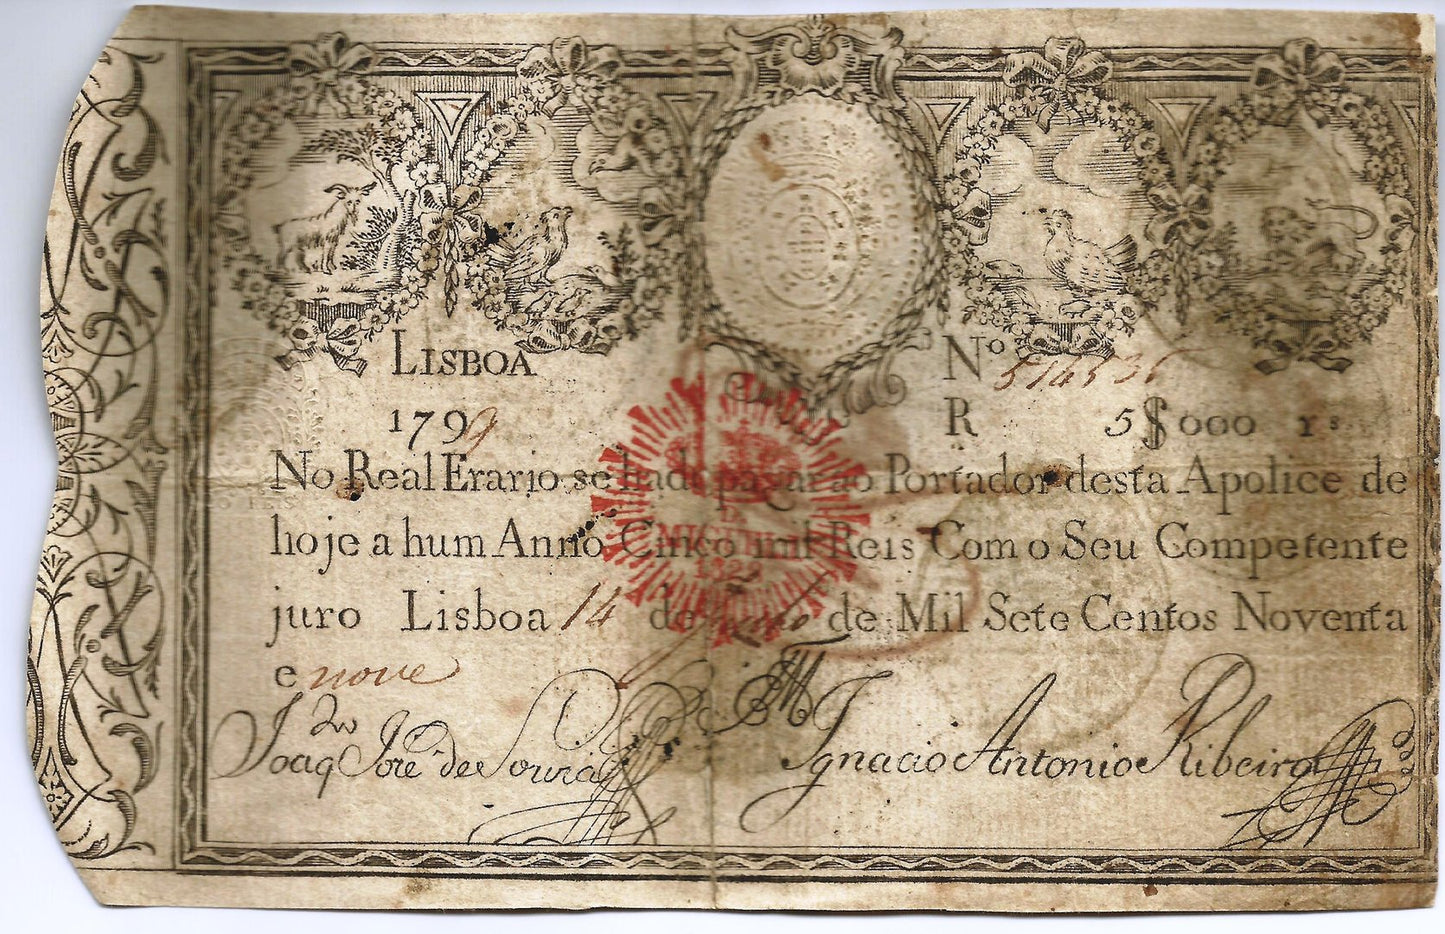 LISBOA
Nº 514536
1799
R 5$000 rs
No Real Erario se hade pagar ao Portador desta Apolice de
hoje a hum Anno Cinco mil Reis Com o Seu Competente
juro Lisboa 14 de de Mil Sete Centos Noventa
e nove
Joaqm José de Souza
Ignacio Antonio Ribeiro